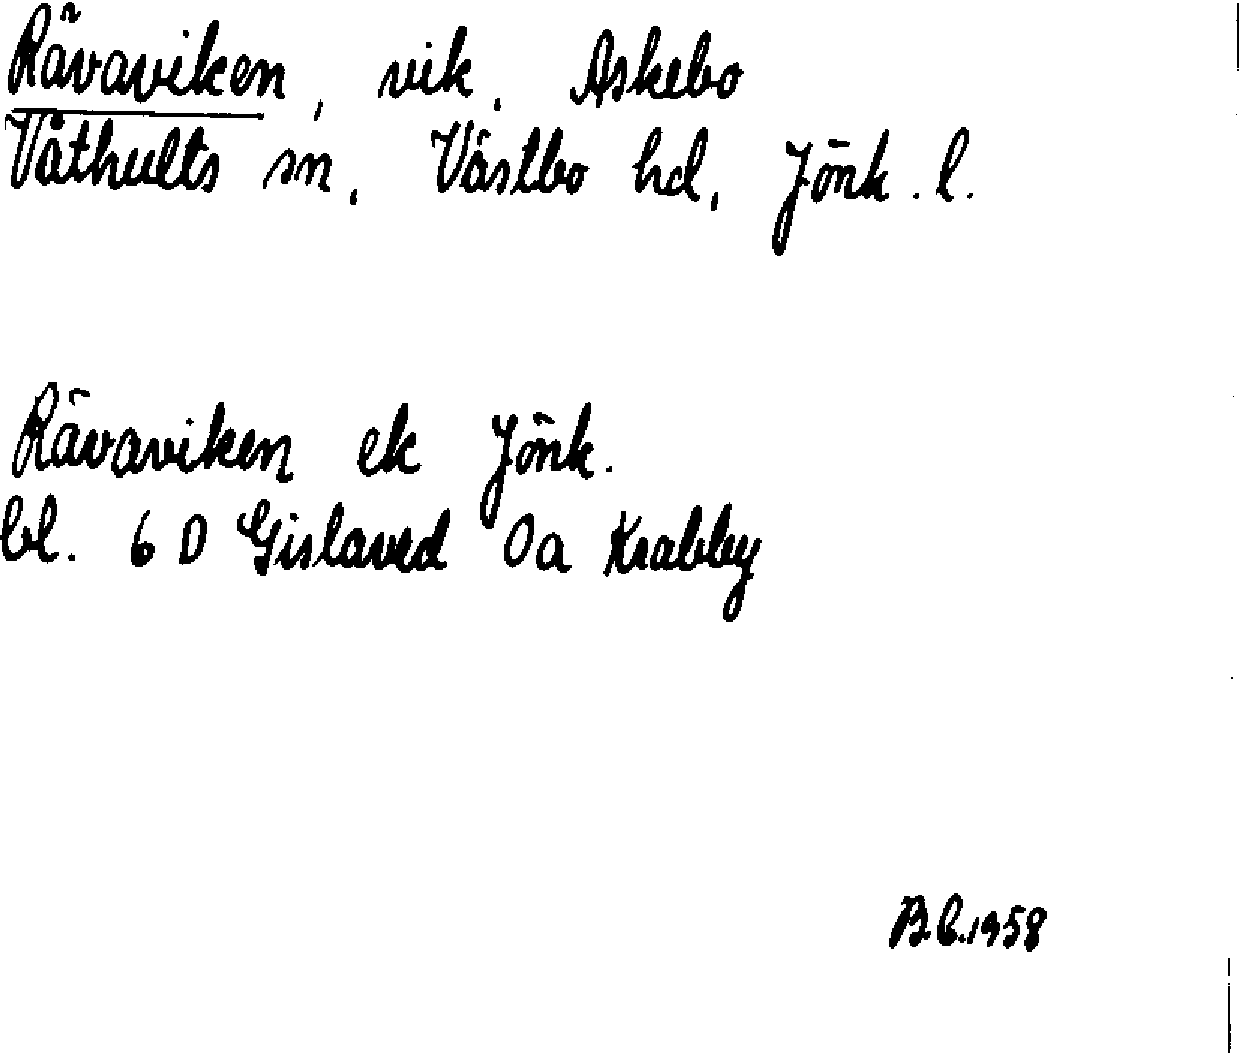 Rävaviken, vik, Askebo
Våthults sn, Västbo hd, Jönk. l.
Rävaviken ek Jönk.
bl. 6 D Gislaved 0a Krabby
B.b.1958